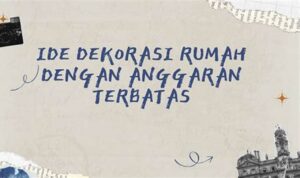 IDE DEKORASI RUMAH
DENGAN ANGGARAN
TERBATAS